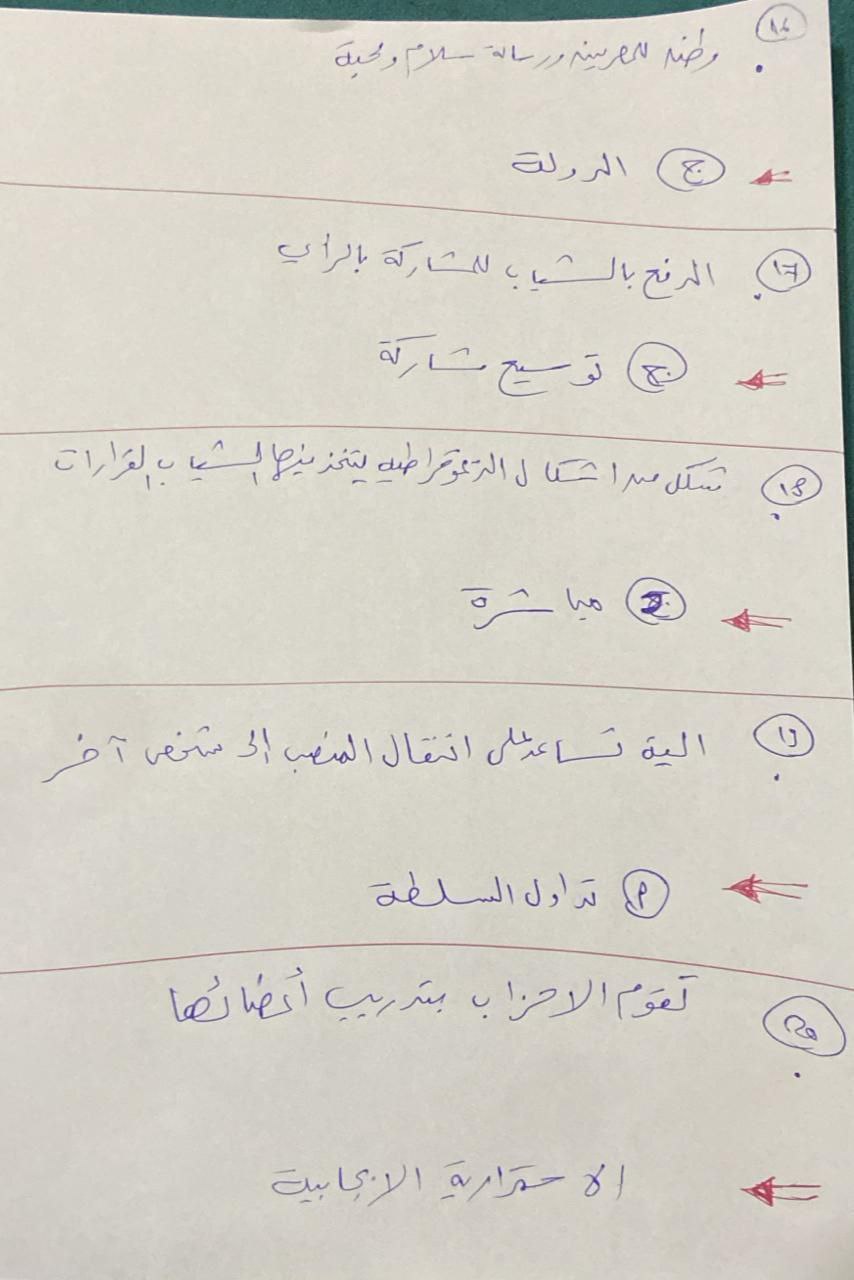 ١٦
وطنه للمصريين ورسالة سلام ومحبة
ج الدولة
١٧
الدفع بالشباب للمشاركة بالرأي
ج توسيع مشاركة
١٨
شكل من اشكال الديموقراطيه يتخذ فيها الشباب القرارات
مباشرة
١٩
الية تساعد على انتقال المنصب الى شخص آخر
أ تداول السلطة
٢٠
تقوم الاحزاب بتدريب أعضائها
الايجابية